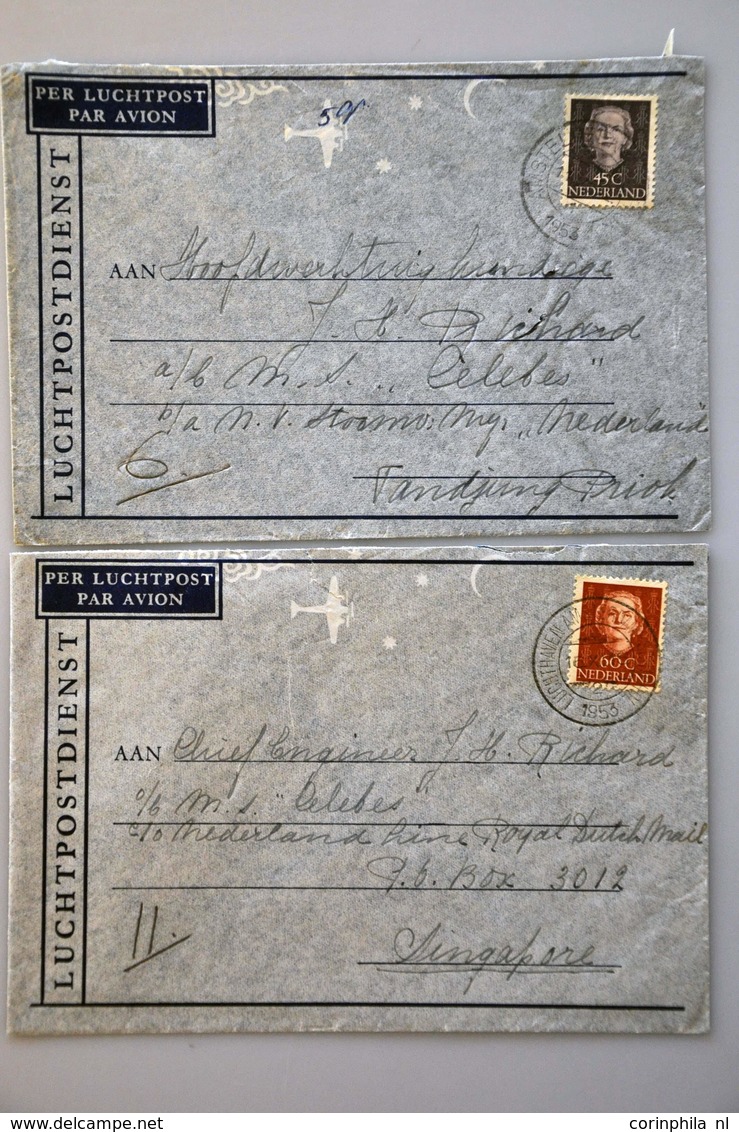 PER LUCHTPOST
PAR AVION
LUCHTPOSTDIENST
59
45 C
NEDERLAND
1953
AAN Hoofdwerktuigkundige
J. H. Richard
a/b M.S. „Celebes"
b/a N.V. Stoomv. Mij. „Nederland"
6.
Tandjung Priok
PER LUCHTPOST
PAR AVION
LUCHTPOSTDIENST
60 C
NEDERLAND
LUCHTHAVEN
1953
AAN Chief Engineer J. H. Richard
o/b M.S. "Celebes"
c/o Nederland Line Royal Dutch Mail
P.O. Box 3012
11.
Singapore
corinphila nl